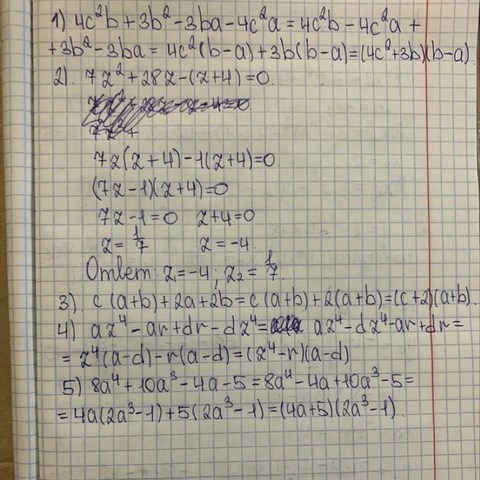 1) 4c²b + 3b² - 3ba - 4c²a = 4c²b - 4c²a +
+ 3b² - 3ba = 4c²(b-a) + 3b(b-a) = (4c²+3b)(b-a)
2). 7z² + 28z - (z+4) = 0.
7z(z+4) - 1(z+4) = 0
(7z-1)(z+4) = 0
7z - 1 = 0 z + 4 = 0
z = 1/7 z = -4.
Ответ: z = -4; z₂ = 1/7.
3) c(a+b) + 2a + 2b = c(a+b) + 2(a+b) = (c+2)(a+b).
4) az⁴ - ar + dr - dz⁴ = az⁴ - dz⁴ - ar + dr =
= z⁴(a-d) - r(a-d) = (z⁴-r)(a-d)
5) 8a⁴ + 10a³ - 4a - 5 = 8a⁴ - 4a + 10a³ - 5 =
= 4a(2a³-1) + 5(2a³-1) = (4a+5)(2a³-1).